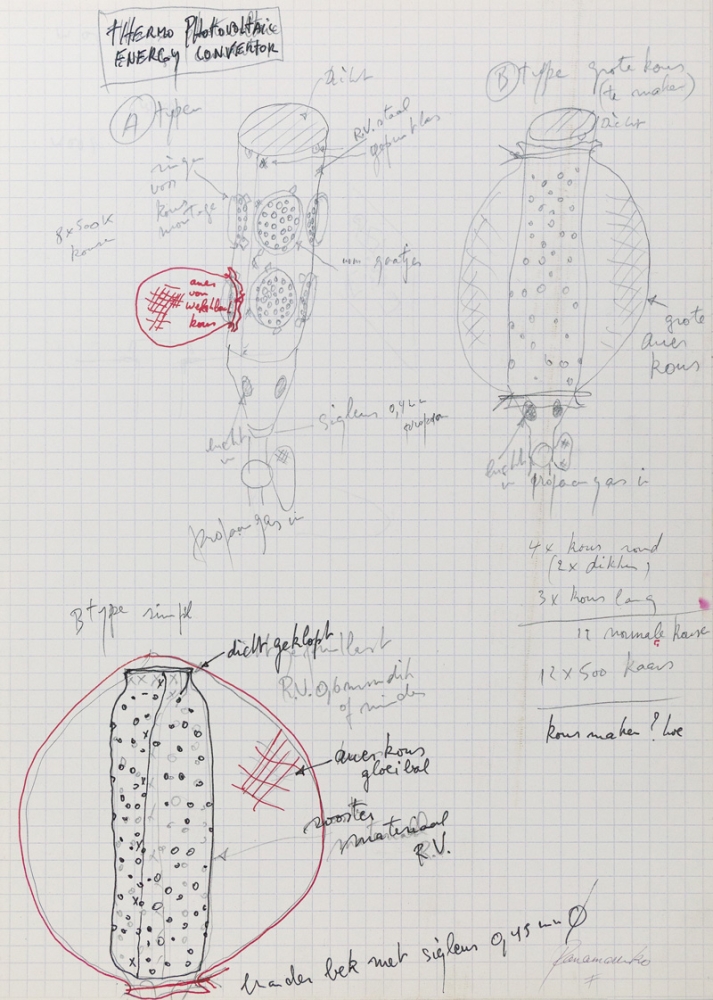 THERMO PHOTOVOLTAIC
ENERGY CONVERTOR
A type
dicht
R.V. staal
gepuntlas
ringen
voor
kous
montage
8 x 500 K
kouse
auer
von
kous
mm gaatjes
lucht
in
0,4
propaan gas in
B type grote kous
(te maken)
dicht
grote
auer
kous
lucht
in
propaan gas in
4 x kous rond
(2 x dikkte)
3 x kous lang
12 normale kouse
12 x 500 kaars
kous maken? hoe
B type simpl
dicht geklopt
R.V. 0,6 mm dik
of minder
auerkous
gloeibal
rooster
materiaal
R.V.
brander bek met 0,45 mm Ø
Panamarenko